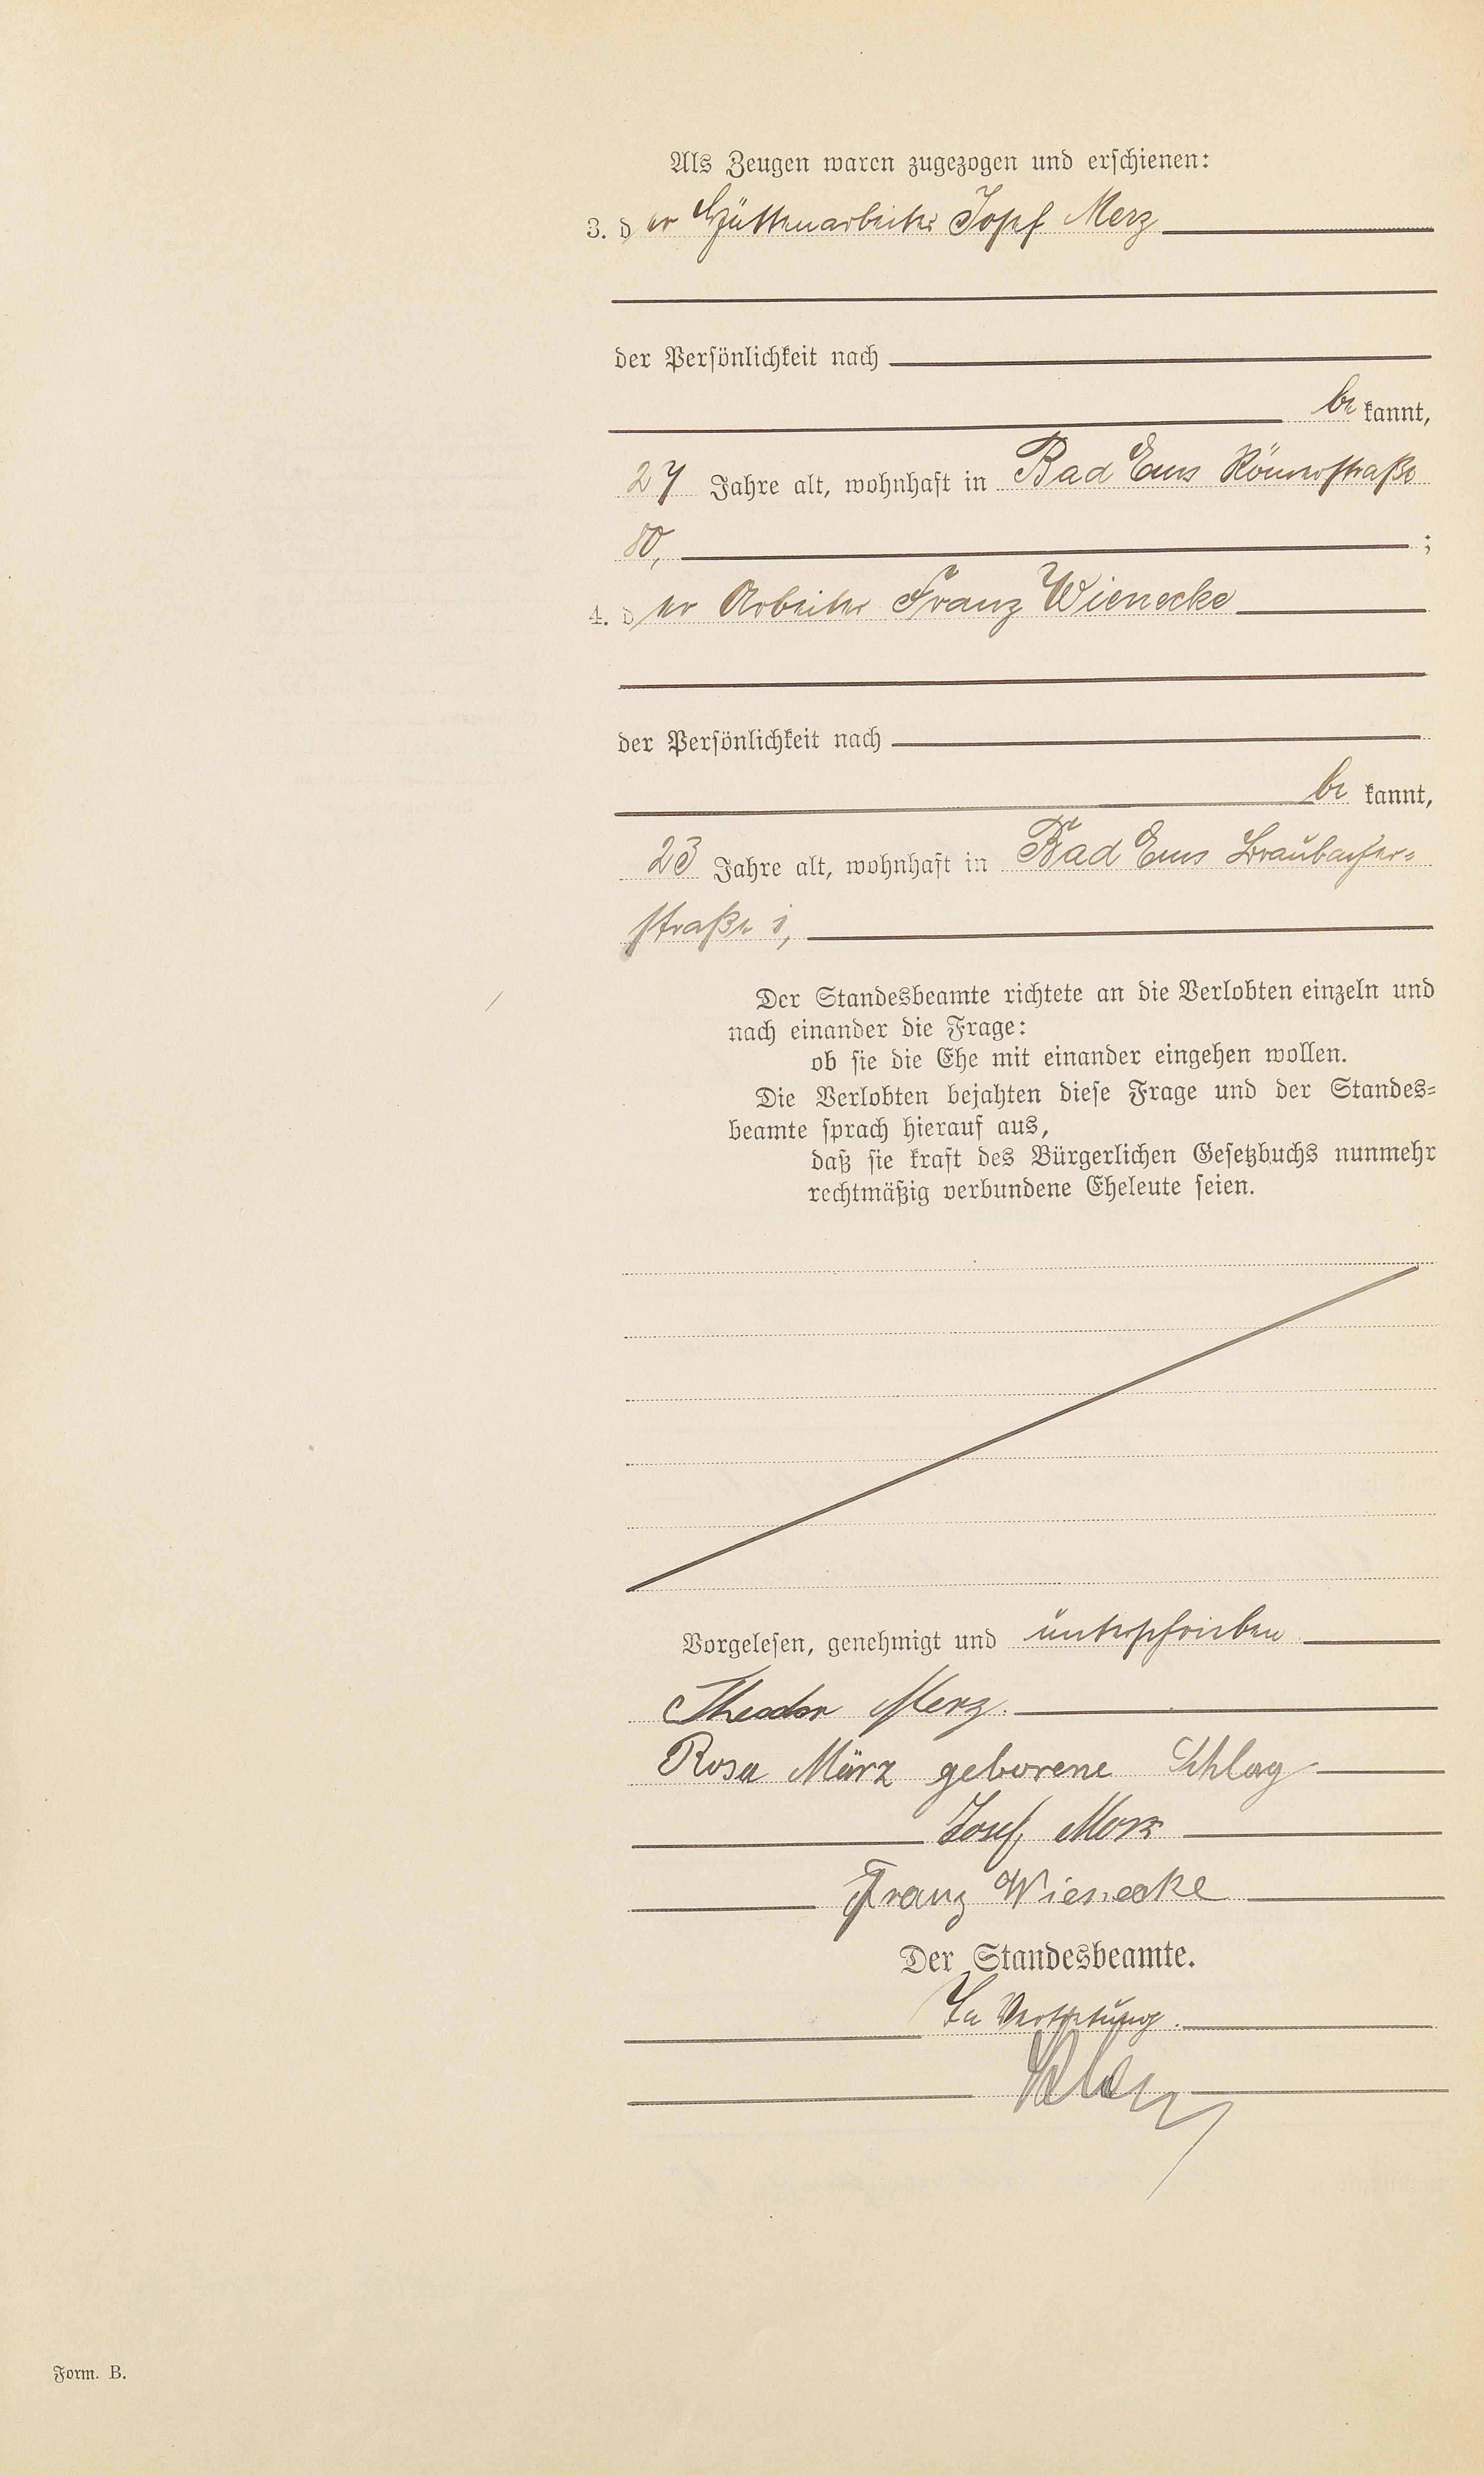 Als Zeugen waren zugezogen und erschienen:
3. der Hüttenarbeiter Josef Merz
der Persönlichkeit nach
be kannt,
27 Jahre alt, wohnhaft in Bad Ems Römerstraße
80, ;
4. der Arbeiter Franz Wienecke
der Persönlichkeit nach
be kannt,
23 Jahre alt, wohnhaft in Bad Ems Braubacher-
straße
Der Standesbeamte richtete an die Verlobten einzeln und
nach einander die Frage:
ob sie die Ehe mit einander eingehen wollen.
Die Verlobten bejahten diese Frage und der Standes-
beamte sprach hierauf aus,
daß sie kraft des Bürgerlichen Gesetzbuchs nunmehr
rechtmäßig verbundene Eheleute seien.
Vorgelesen, genehmigt und unterschrieben
Theodor Merz.
Rosa März geborene Schlag
Josef Merz
Franz Wienecke
Der Standesbeamte.
In Vertretung.
Form. B.